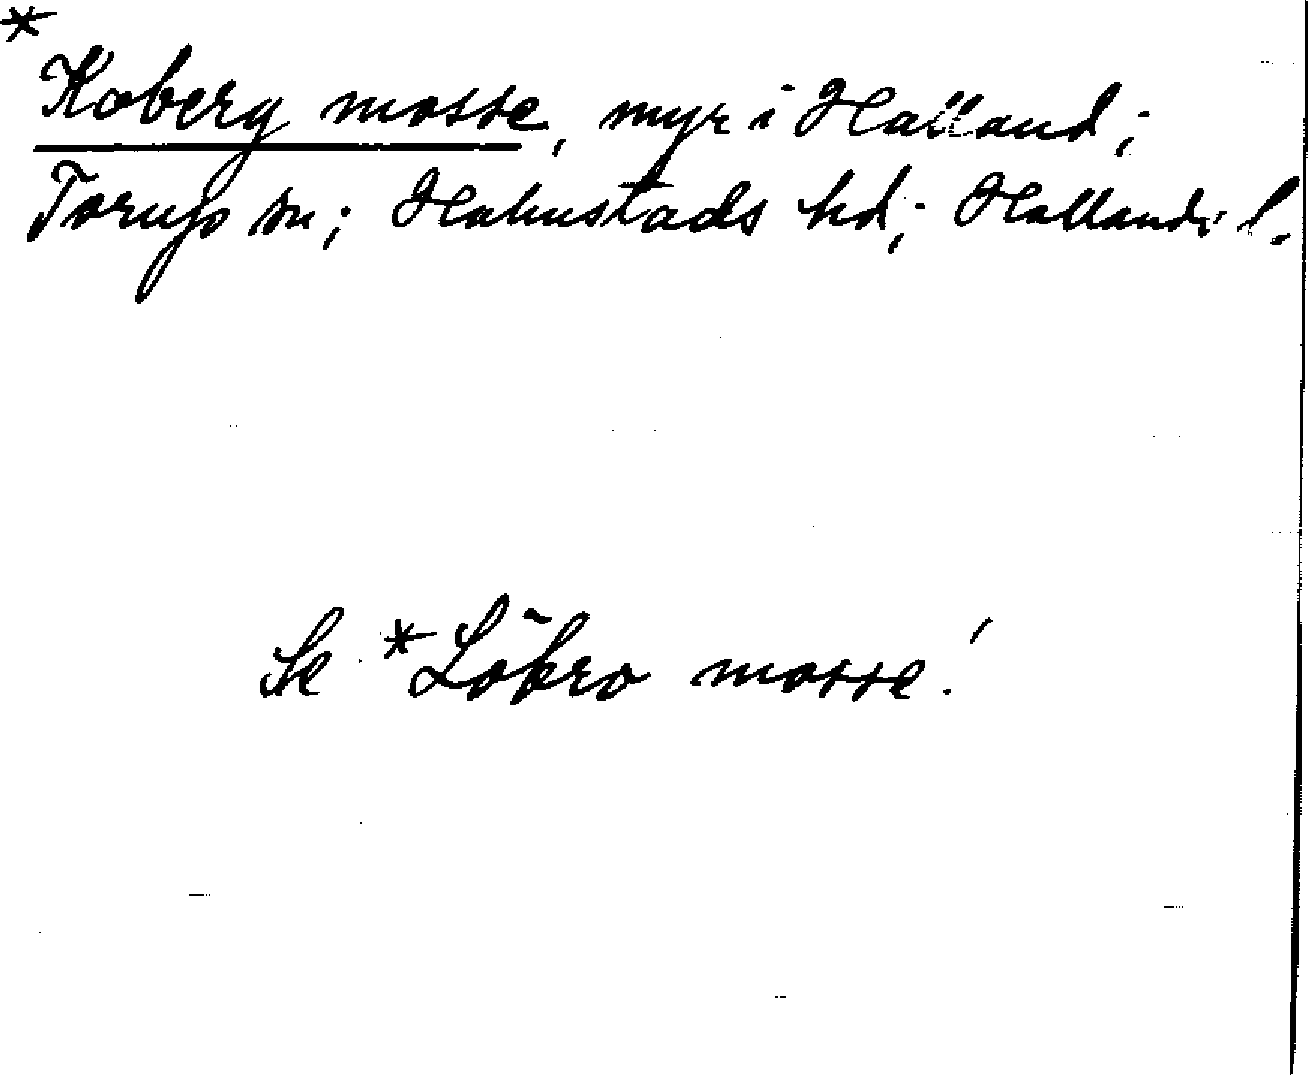 *
Koberg mosse, myr i Halland;
Torup sn; Halmstads hd; Hallands l.
Se *Löbro mosse!